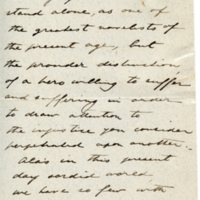 stand alone as one of
the greatest novelists of
the present age, but
the prouder distinction
of a hero willing to suffer
and suffering in order
to draw attention to
the injustice you consider
perpetrated upon another.
Alas in this present
day sordid world
we have so few with